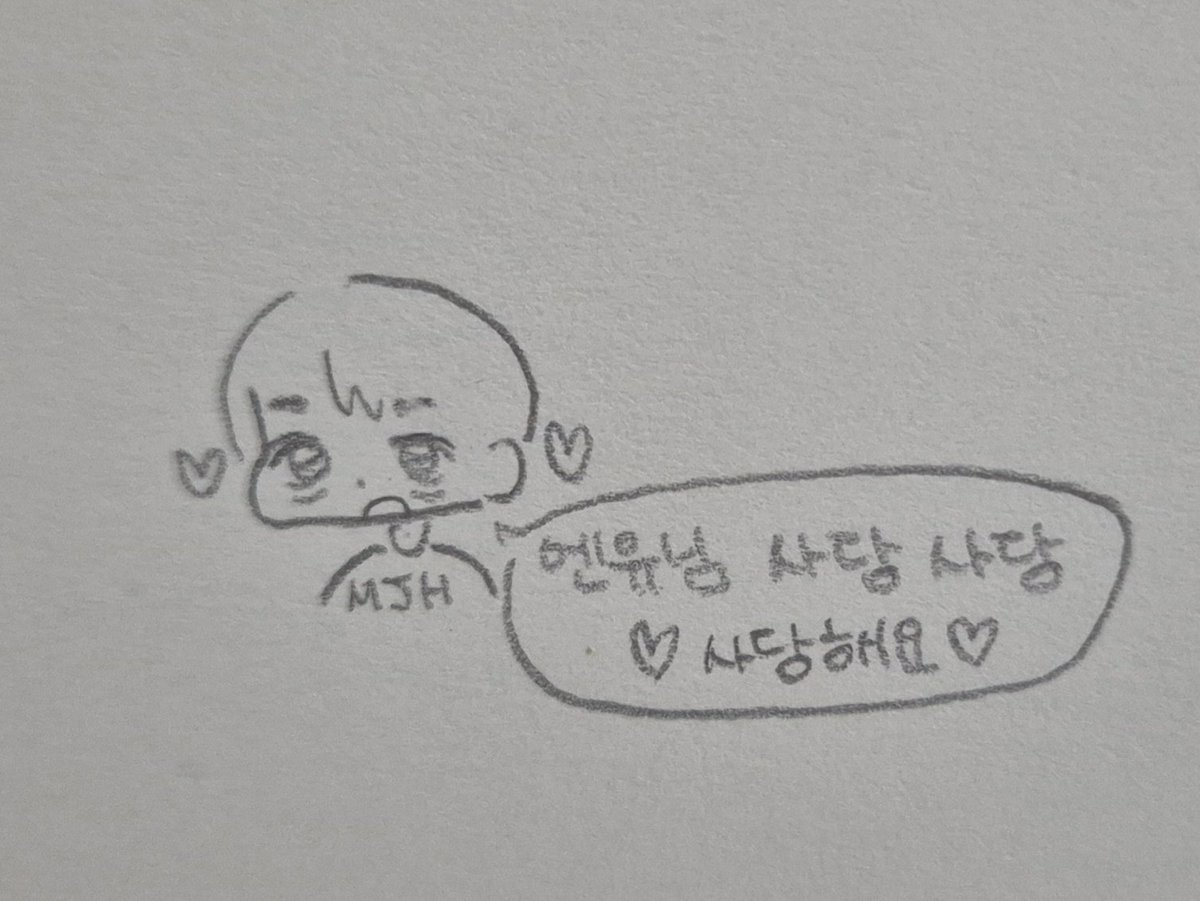 MJH
엔유님 사당 사당
♡ 사당해요 ♡